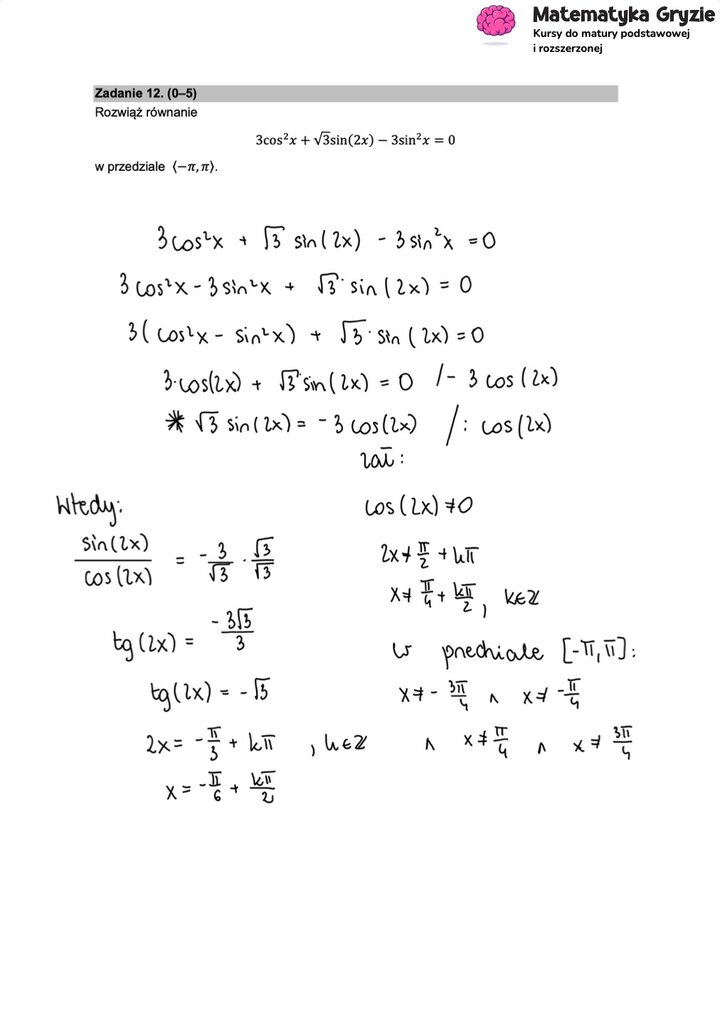 Matematyka Gryzie
Kursy do matury podstawowej
i rozszerzonej
Zadanie 12. (0–5)
Rozwiąż równanie
3cos²x + √3sin(2x) − 3sin²x = 0
w przedziale ⟨−π, π⟩.
3cos²x + √3 sin(2x) - 3sin²x = 0
3cos²x - 3sin²x + √3 · sin(2x) = 0
3(cos²x - sin²x) + √3 · sin(2x) = 0
3·cos(2x) + √3 · sin(2x) = 0 /- 3cos(2x)
* √3 sin(2x) = -3cos(2x) /: cos(2x)
zał:
Wtedy:
sin(2x)/cos(2x) = -3/√3 · √3/√3
tg(2x) = -3√3/3
tg(2x) = -√3
2x = -π/3 + kπ , k∈ℤ
x = -π/6 + kπ/2
cos(2x) ≠ 0
2x ≠ π/2 + kπ
x ≠ π/4 + kπ/2, k∈ℤ
w przedziale [-π, π]:
x ≠ -3π/4 ∧ x ≠ -π/4
∧ x ≠ π/4 ∧ x ≠ 3π/4